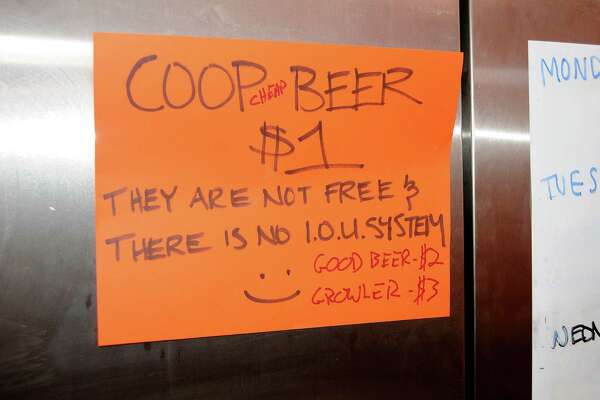 COOP CHEAP BEER
$1
THEY ARE NOT FREE &
THERE IS NO I.O.U. SYSTEM
GOOD BEER-$2
GROWLER-$3
MOND
TUES
NEDN